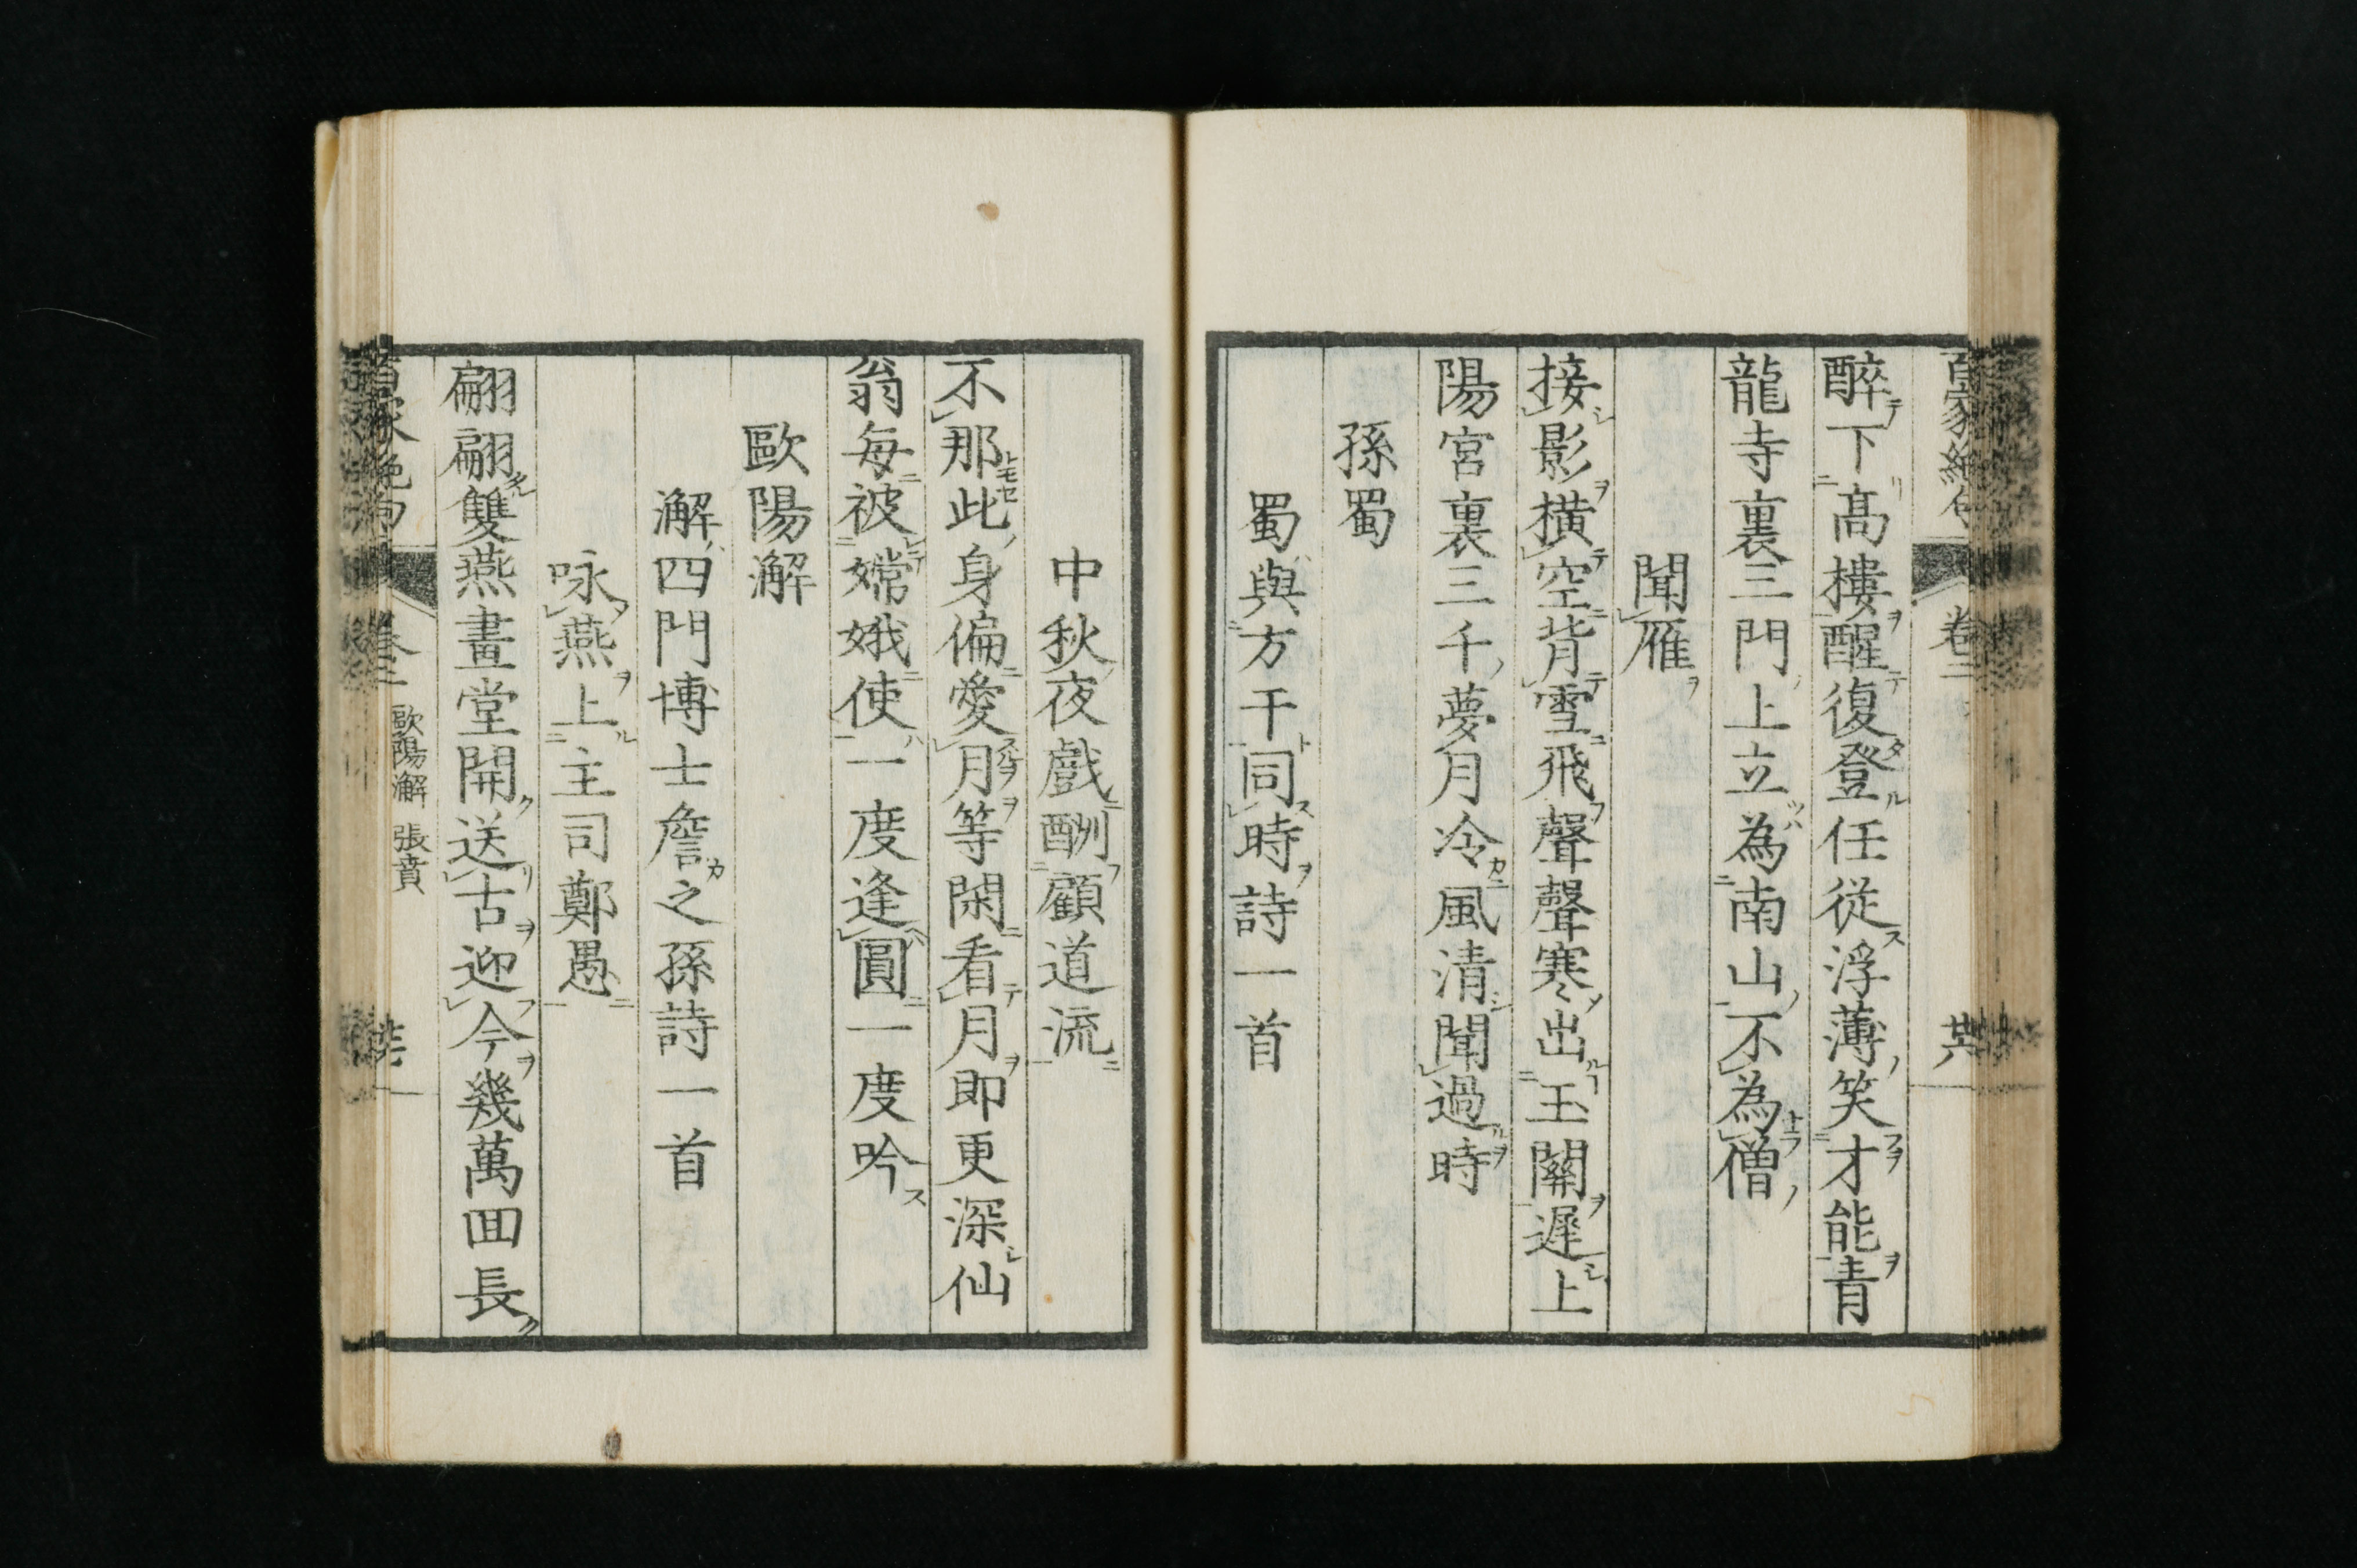 百家絶句 卷二 共
醉下高樓醒復登任從浮薄笑才能青
龍寺裏三門上立為南山不為僧
聞雁
接影橫空背雪飛聲聲寒出玉關遲上
陽宮裏三千夢月冷風清聞過時
孫蜀
蜀與方干同時詩一首
中秋夜戲酬顧道流
不那此身偏愛月等閑看月即更深仙
翁每被嫦娥使一度逢圓一度吟
歐陽澥
澥四門博士詹之孫詩一首
咏燕上主司鄭愚
翩翩雙燕畫堂開送古迎今幾萬囬長
百家絶句 卷二 歐陽澥 張賁